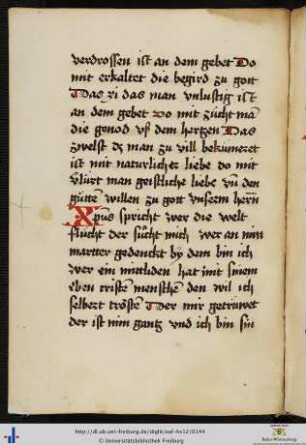 verdrossen ist an dem gebet Do
mit erkaltet die begird zu gott
Das xi das man vnlustig ist
an dem gebet Do mit zücht mā
die genod vß dem hertzen Das
zwelft dz man zu vill bekumeret
ist mit naturlicher liebe do mit
vlürt man geistliche liebe vn̄ den
gütte willen zu gott vnserm hern
Xp̄us spricht wer die welt
flücht der sücht mich wer an min
martter gedenckt by dem bin ich
wer ein mitliden hat mit sinem
eben cristē menschē den wil ich
selbert tröstē Der mir getruwet
der ist min gantz vnd ich bin sin
http://dl.ub.uni-freiburg.de/diglit/suf-hs12/0144
© Universitätsbibliothek Freiburg
Baden-Württemberg